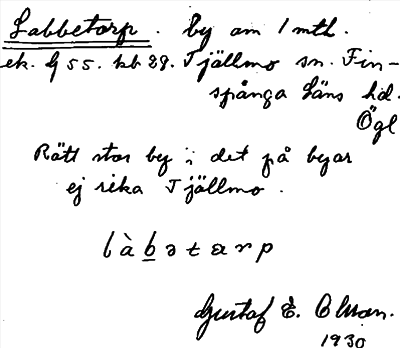 Labbetorp. by om 1 mtl.
ek. G 55. kb 29. Tjällmo sn. Fin-
spånga läns hd.
Ögl
Rätt stor by i det på byar
ej rika Tjällmo.
làbətarp
Gustaf E. Olsson.
1930